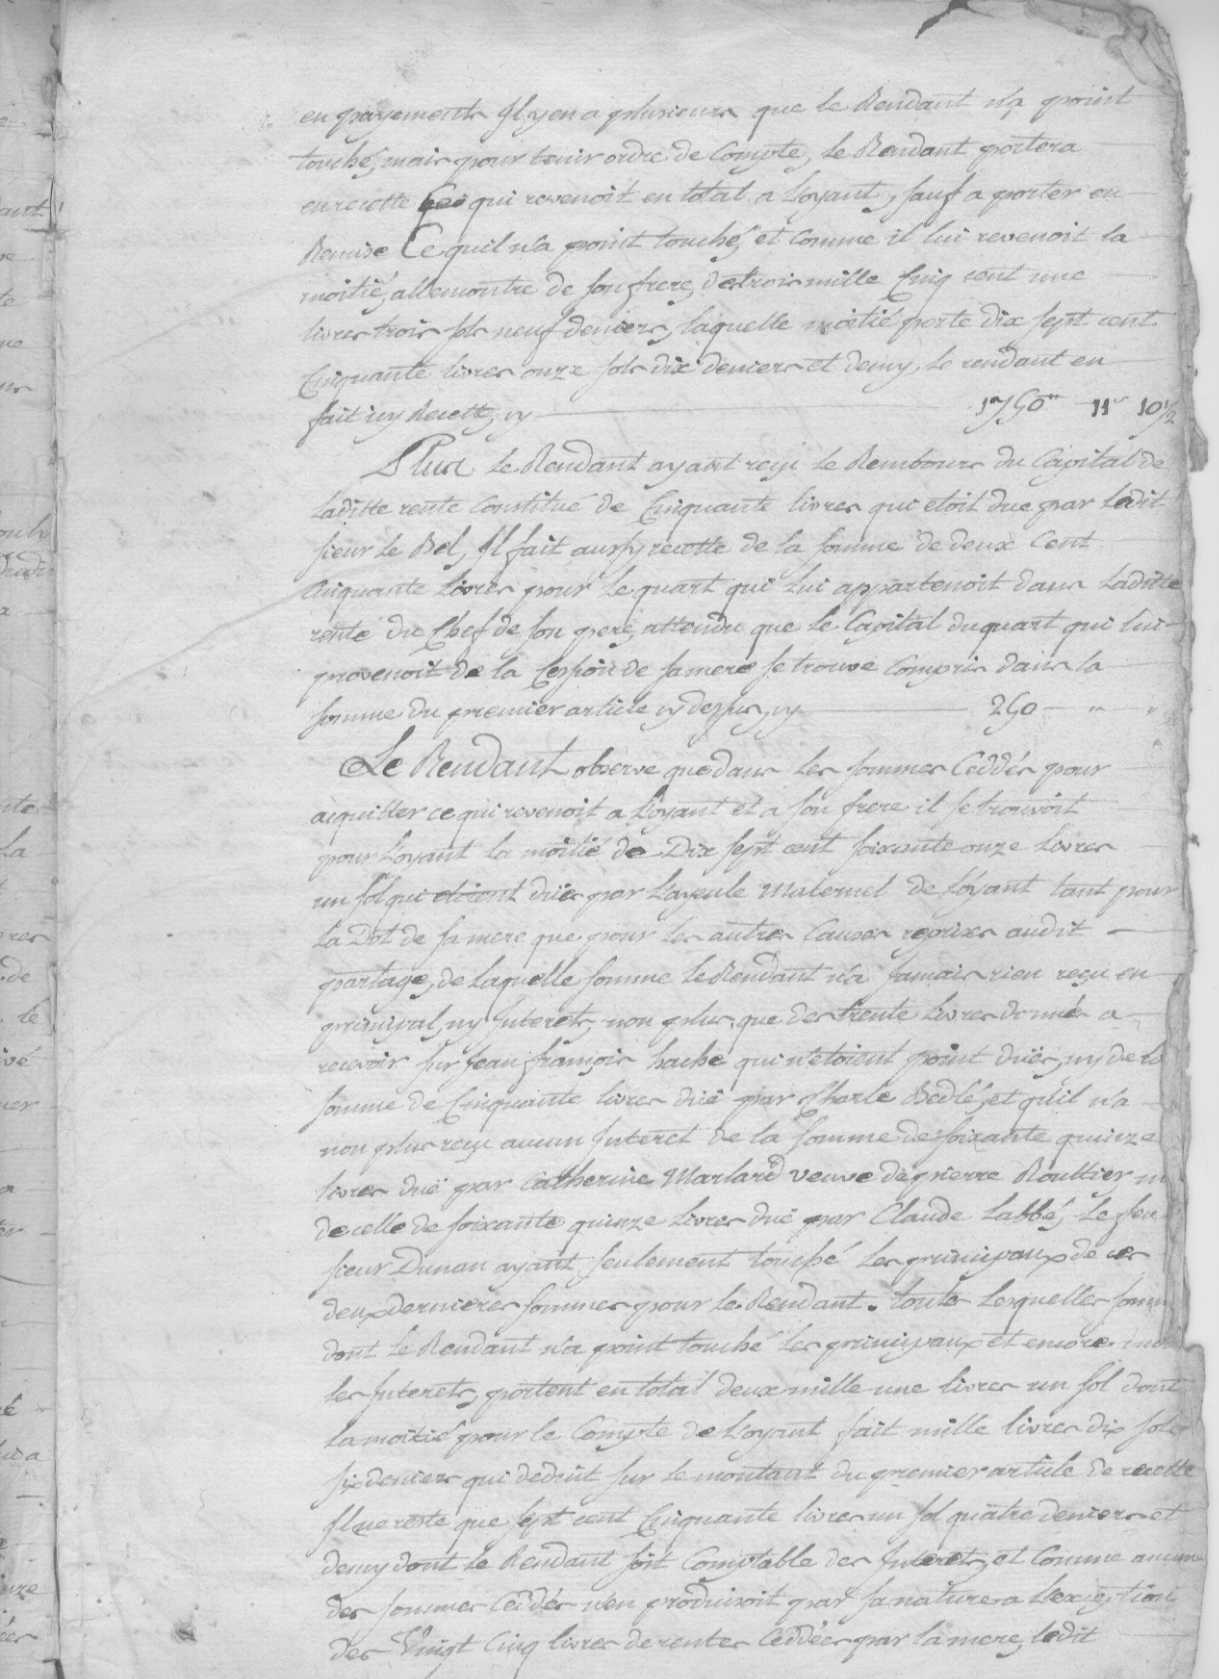 en payements Il y en a plusieurs que le Rendant n'a point
touché, mais pour tenir ordre de Compte, le Rendant portera
en recette Ce qui revenoit en total a Loyant, sauf a porter en
Remise Ce quil n'a point touché, et comme il lui revenoit la
moitié, allencontre de son frere, de trois mille Cinq cent une
livres trois sols neuf deniers, laquelle moitié porte dix sept cent
Cinquante livres onze sols dix deniers et demy, le rendant en
fait icy Recette, cy 1750 11 10 1/2
Plus Le Rendant ayant reçu le Rembours du Capital de
Laditte rente Constitué de Cinquante livres qui etoit due par Ledit
sieur le Bel, Il fait aussy recette de la somme de deux Cent
Cinquante Livres pour Le quart qui Lui appartenoit dans Laditte
rente du Chef de son pere, attendu que le Capital du quart qui lui
provenoit de la Cession de sa mere se trouve Compris dans la
somme du premier article cy dessus, cy 250 " "
Le Rendant observe que dans Les sommes Ceddés pour
aquitter ce qui revenoit a Loyant et a son frere il se trouvoit
pour Loyant la moitié de Dix sept cent soixante onze Livres
un sol qui etoient duës par L'ayeule Maternel de Loyant tant pour
La Dot de sa mere que pour les autres Causes reprises audit
partage, de Laquelle somme le Rendant n'a Jamais rien reçu en
principal, ny Interets, non plus que des trente Livres donné a
recevoir sur Jean françois hache qui n'etoient point duës, ny de la
somme de Cinquante livres duë par Charle Bedlé, et qu'il n'a
non plus reçu aucun Interet de la somme de soixante quinze
livres duë par Catherine Marlard veuve de pierre Roultier
de celle de soixante quinze Livres duë par Claude Labbé, Le feu
sieur Dunan ayant seulement touché Les principaux de ces
deux dernieres sommes pour Le Rendant. toutes Lesquelles
dont le Rendant n'a point touché Les principaux et encore
les Interets, portent en total deux mille une livres un sol dont
La moitié pour le Compte de Loyant fait mille livres dix sols
six deniers qui deduit sur Le montant du premier article de recette
Il ne reste que sept cent Cinquante livres un sol quatre deniers et
demy dont Le Rendant soit Comptable des Interets, et Comme aucune
des sommes Ceddés n'en produisoit par sa nature a L'exception
des Vingt Cinq livres de rentes Ceddées par la mere, ledit